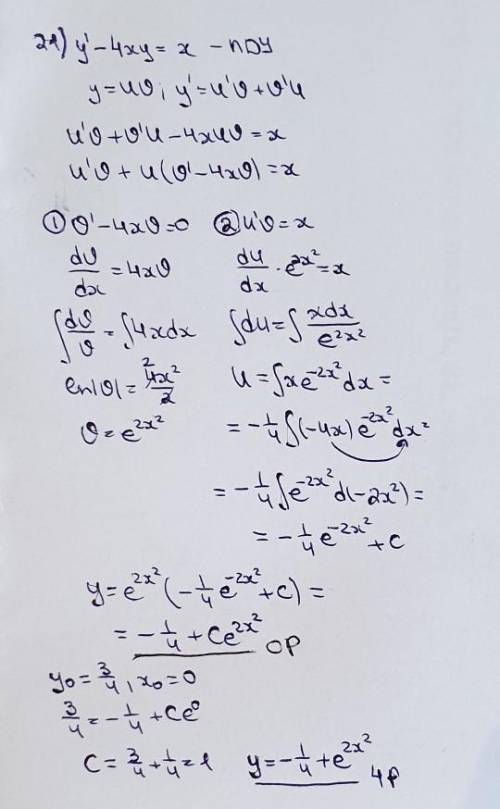 21) y' - 4xy = x - ЛДУ
y = uϑ; y' = u'ϑ + ϑ'u
u'ϑ + ϑ'u - 4xuϑ = x
u'ϑ + u(ϑ' - 4xϑ) = x
① ϑ' - 4xϑ = 0
dϑ/dx = 4xϑ
∫dϑ/ϑ = ∫4xdx
ln|ϑ| = 4x²/2
ϑ = e^{2x²}
② u'ϑ = x
du/dx · e^{2x²} = x
∫du = ∫xdx/e^{2x²}
u = ∫xe^{-2x²}dx =
= -1/4 ∫(-4x)e^{-2x²}dx²
= -1/4 ∫e^{-2x²}d(-2x²) =
= -1/4 e^{-2x²} + C
y = e^{2x²}(-1/4 e^{-2x²} + C) =
= -1/4 + Ce^{2x²} ОР
y₀ = 3/4, x₀ = 0
3/4 = -1/4 + Ce⁰
C = 3/4 + 1/4 = 1
y = -1/4 + e^{2x²} ЧР